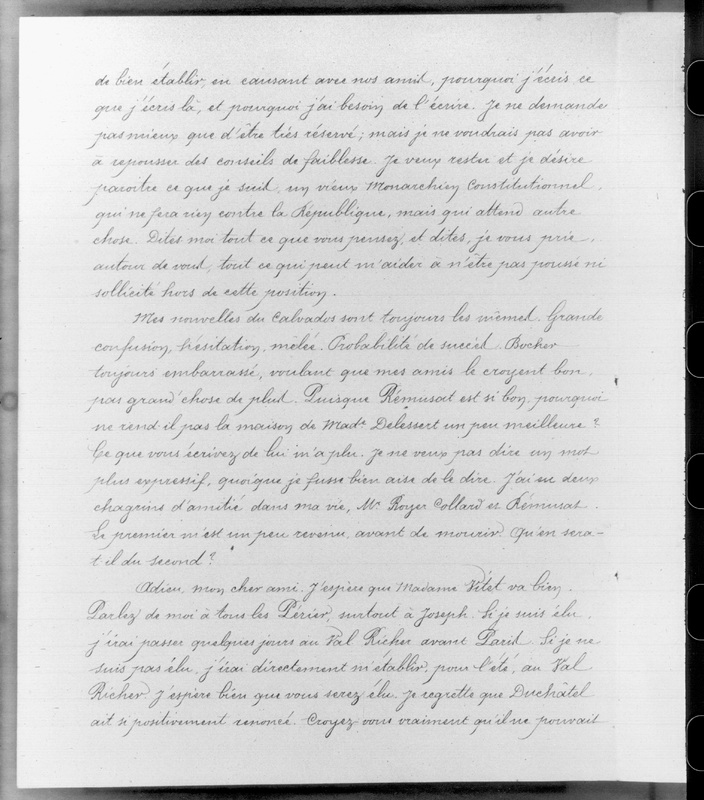 de bien établir, en causant avec nos amis, pourquoi j'écris ce
que j'écris là, et pourquoi j'ai besoin de l'écrire. Je ne demande
pas mieux que d'être très réservé ; mais je ne voudrais pas avoir
à repousser des conseils de faiblesse. Je veux rester et je désire
paroitre ce que je suis, un vieux Monarchien Constitutionnel,
qui ne fera rien contre la République, mais qui attend autre
chose. Dites moi tout ce que vous pensez, et dites, je vous prie,
autour de vous, tout ce qui peut m'aider à n'être pas poussé ni
sollicité hors de cette position.
Mes nouvelles du Calvados sont toujours les mêmes. Grande
confusion, hésitation, mêlée. Probabilité de succès. Bocher
toujours embarrassé, voulant que mes amis le croyent bon,
pas grand'chose de plus. Puisque Rémusat est si bon, pourquoi
ne rend-il pas la maison de Made Delessert un peu meilleure ?
Ce que vous écrivez de lui m'a plu. Je ne veux pas dire un mot
plus expressif, quoique je fusse bien aise de le dire. J'ai eu deux
chagrins d'amitié dans ma vie, Mr Royer Collard et Rémusat.
Le premier m'est un peu revenu, avant de mourir. Qu'en sera-
t-il du second ?
Adieu, mon cher ami. J'espère que Madame Vitet va bien.
Parlez de moi à tous les Périer, surtout à Joseph. Si je suis élu,
j'irai passer quelques jours au Val Richer avant Paris. Si je ne
suis pas élu, j'irai directement m'établir, pour l'été, au Val
Richer. J'espère bien que vous serez élu. Je regrette que Duchâtel
ait si positivement renoncé. Croyez-vous vraiment qu'il ne pouvait